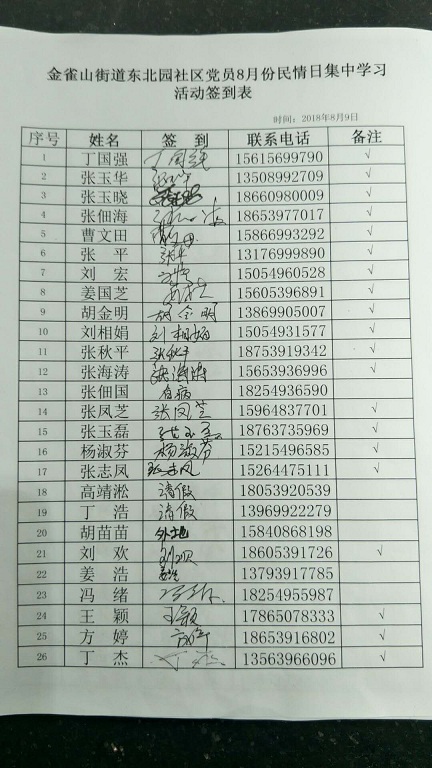 金雀山街道东北园社区党员8月份民情日集中学习
活动签到表
时间：2018年8月9日
序号 姓名 签 到 联系电话 备注
1 丁国强 丁国强 15615699790 √
2 张玉华 13508992709 √
3 张玉晓 18660980009 √
4 张佃海 18653977017 √
5 曹文田 15866993292 √
6 张 平 张平 13176999890 √
7 刘 宏 15054960528 √
8 姜国芝 15605396891 √
9 胡金明 胡金明 13869905007 √
10 刘相娟 刘相娟 15054931577 √
11 张秋平 张秋平 18753919342 √
12 张海涛 张海涛 15653936996 √
13 张佃国 有病 18254936590
14 张凤芝 张凤芝 15964837701 √
15 张玉磊 张玉磊 18763735969 √
16 杨淑芬 杨淑芬 15215496585 √
17 张志凤 张志凤 15264475111 √
18 高靖淞 请假 18053920539
19 丁 浩 请假 13969922279
20 胡苗苗 外地 15840868198
21 刘 欢 刘欢 18605391726 √
22 姜 浩 13793917785
23 冯 绪 18254955987
24 王 颖 王颖 17865078333 √
25 方 婷 方婷 18653916802 √
26 丁 杰 丁杰 13563966096 √